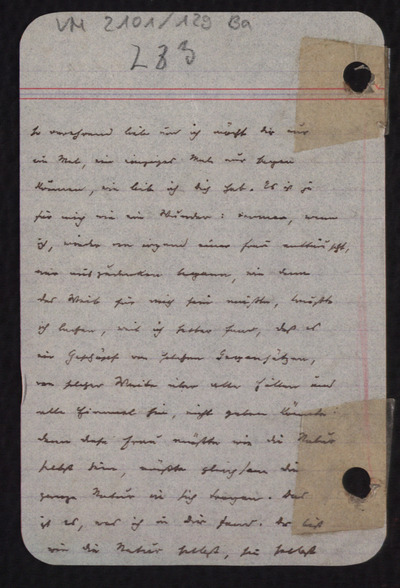 VM 2101/129 Ba
283
So verehrend lieb und ich möcht dir nur
ein Mal, ein einziges Mal nur sagen
können, wie lieb ich Dich hab. Es ist ja
für mich wie ein Wunder: immer, wenn
ich, wieder von irgend einer Frau enttäuscht,
mir auszudenken begann, wie denn
das Weib für mich sein müsste, musste
ich lachen, weil ich selber fand, daß es
ein Geschöpf von solchen Gegensätzen,
von solcher Weite über alle Höllen und
alle Himmel hin, nicht geben könnte:
denn diese Frau müsste wie die Natur
selbst sein, müsste gleichsam die
ganze Natur in sich tragen. Das
ist es, was ich in dir fand. Du bist
wie die Natur selbst, sie selbst